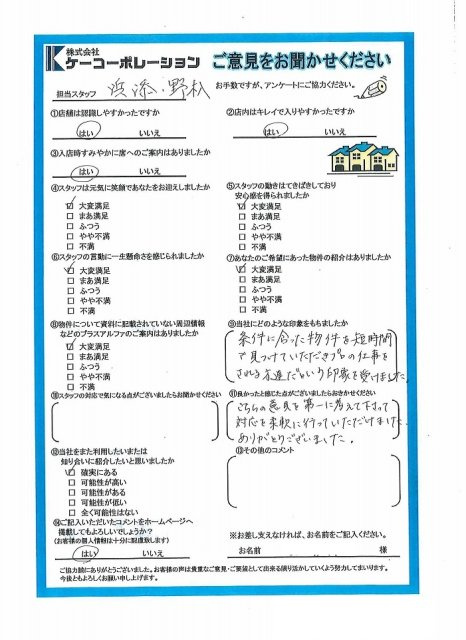 株式会社
ケーコーポレーション
ご意見をお聞かせください
担当スタッフ
野杁
お手数ですが、アンケートにご協力ください。
①店舗は認識しやすかったですか
はい いいえ
②店内はキレイで入りやすかったですか
はい いいえ
③入店時すみやかに席へのご案内はありましたか
はい いいえ
④スタッフは元気に笑顔であなたをお迎えしましたか
大変満足
まあ満足
ふつう
やや不満
不満
⑤スタッフの動きはてきぱきしており
安心感を得られましたか
大変満足
まあ満足
ふつう
やや不満
不満
⑥スタッフの言動に一生懸命さを感じられましたか
大変満足
まあ満足
ふつう
やや不満
不満
⑦あなたのご希望にあった物件の紹介はありましたか
大変満足
まあ満足
ふつう
やや不満
不満
⑧物件について資料に記載されていない周辺情報
などのプラスアルファのご案内はありましたか
大変満足
まあ満足
ふつう
やや不満
不満
⑨当社にどのような印象をもちましたか
条件に合った物件を短時間
で見つけていただきプロの仕事を
される方達だという印象を受けました
⑩スタッフの対応で気になる点がございましたらお聞かせください
⑪良かったと感じた点がございましたらおきかせください
こちらの意見を第一に考えて下さって
対応を柔軟に行っていただけました
ありがとうございました。
⑫当社をまた利用したいまたは
知り合いに紹介したいと思いましたか
確実にある
可能性が高い
可能性がある
可能性が低い
全く可能性はない
⑬その他のコメント
⑭ご記入いただいたコメントをホームページへ
掲載してもよろしいでしょうか？
(お客様の個人情報は十分に配慮致します)
はい いいえ
※お差し支えなければ、お名前をご記入ください。
お名前 様
ご協力誠にありがとうございました。お客様の声は貴重なご意見・ご要望として出来る限り活かしていくよう努力してまいります。
今後ともよろしくお願い申し上げます。